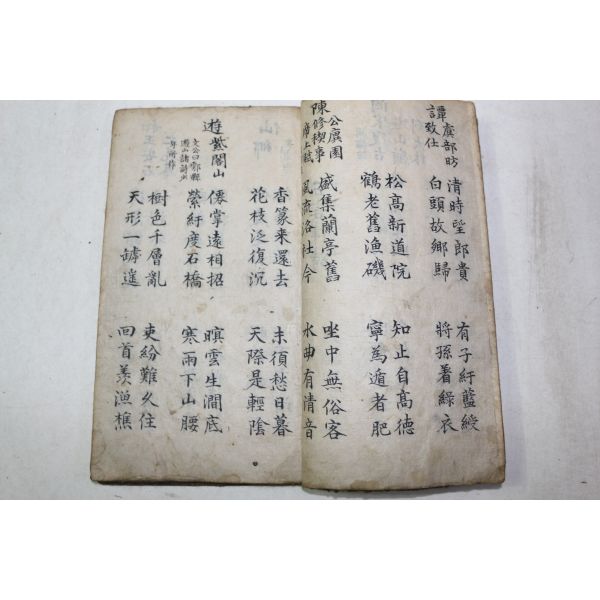 虞部昉
譚致仕
清時望郎貴
白頭故鄉歸
有子紆藍綬
將孫着綠衣
松髙新道院
鶴老舊漁磯
知止自髙德
寧爲遁者肥
公廙園
陳修禊事
席上賦
盛集蘭亭舊
風流洛社今
坐中無俗客
水曲有清音
香篆来還去
花枝泛復沉
未須愁日暮
天際是輕陰
遊紫閣山
文公曰鄠縣
遊山諸詩少
年所作
僊掌遠相招
縈紆度石橋
暝雲生澗底
寒雨下山腰
樹色千層亂
天形一罅遙
吏紛難久住
回首羨漁樵